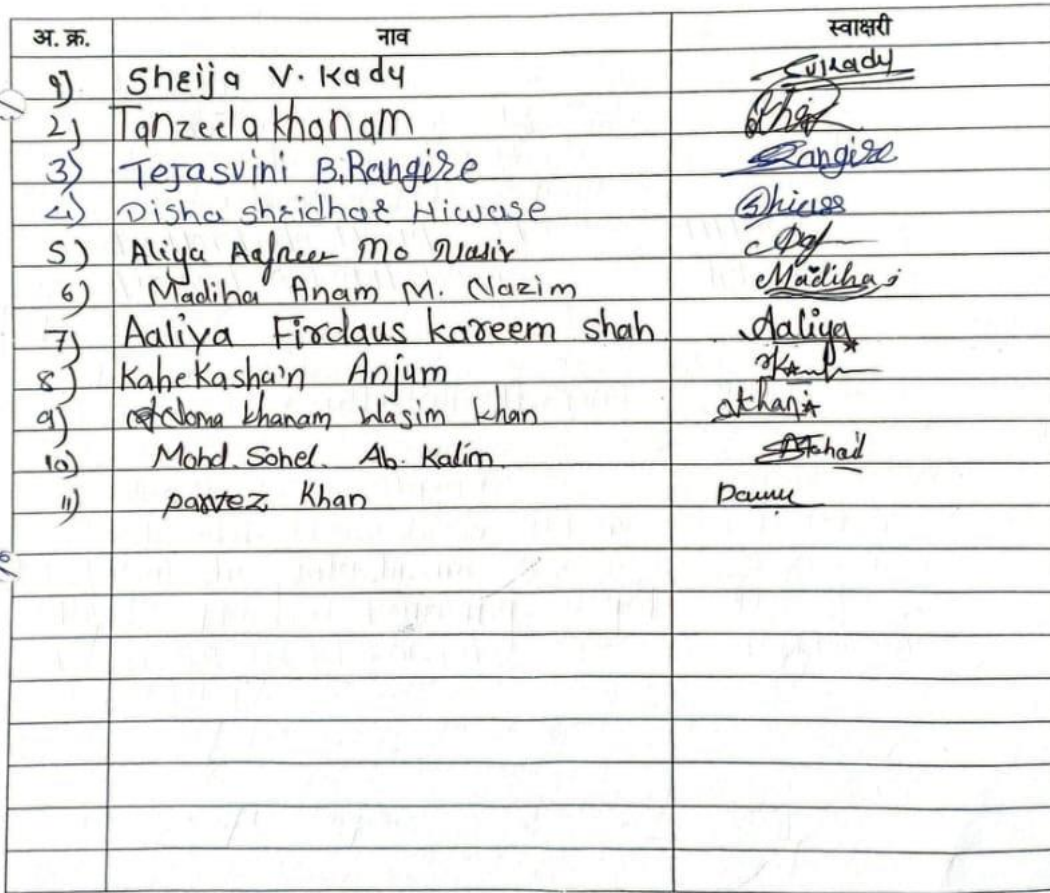 अ. क्र. नाव स्वाक्षरी
१) Sheija V. Kady Svkady
2) Tanzeela khanam
3) Tejasvini B. Rangire Rangire
4) Disha shridhar Hiwase
5) Aliya Aafreen Mo Nasir
6) Madiha Anam M. Nazim Madiha
7) Aaliya Firdaus kareem shah Aaliya
8) Kahekasha'n Anjum
9) Noma khanam Wasim khan
10) Mohd. Sohel. Ab. Kalim
11) parvez Khan